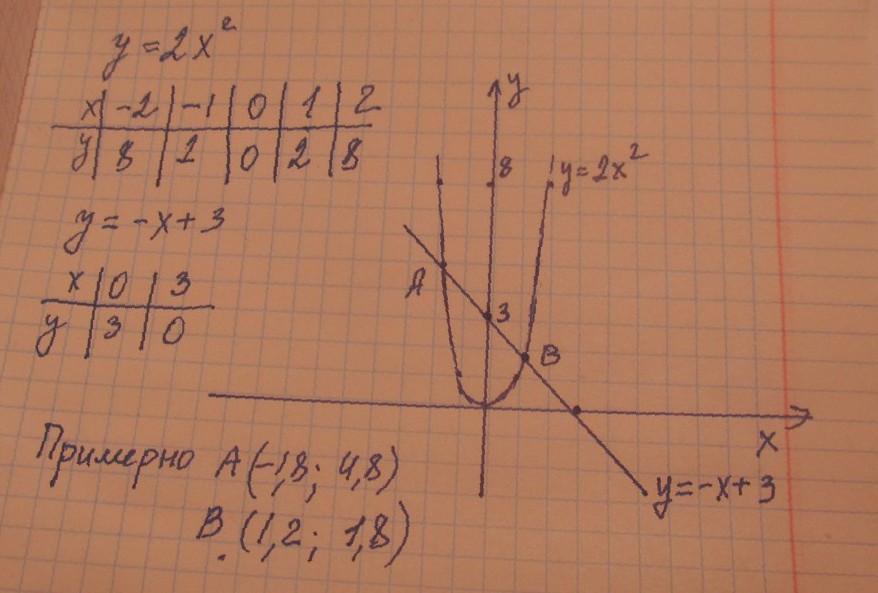 y = 2x²
x | -2 | -1 | 0 | 1 | 2
y | 8 | 2 | 0 | 2 | 8
y = -x + 3
x | 0 | 3
y | 3 | 0
y
8
y = 2x²
A
3
B
x
y = -x + 3
Примерно A (-1,8; 4,8)
B (1,2; 1,8)